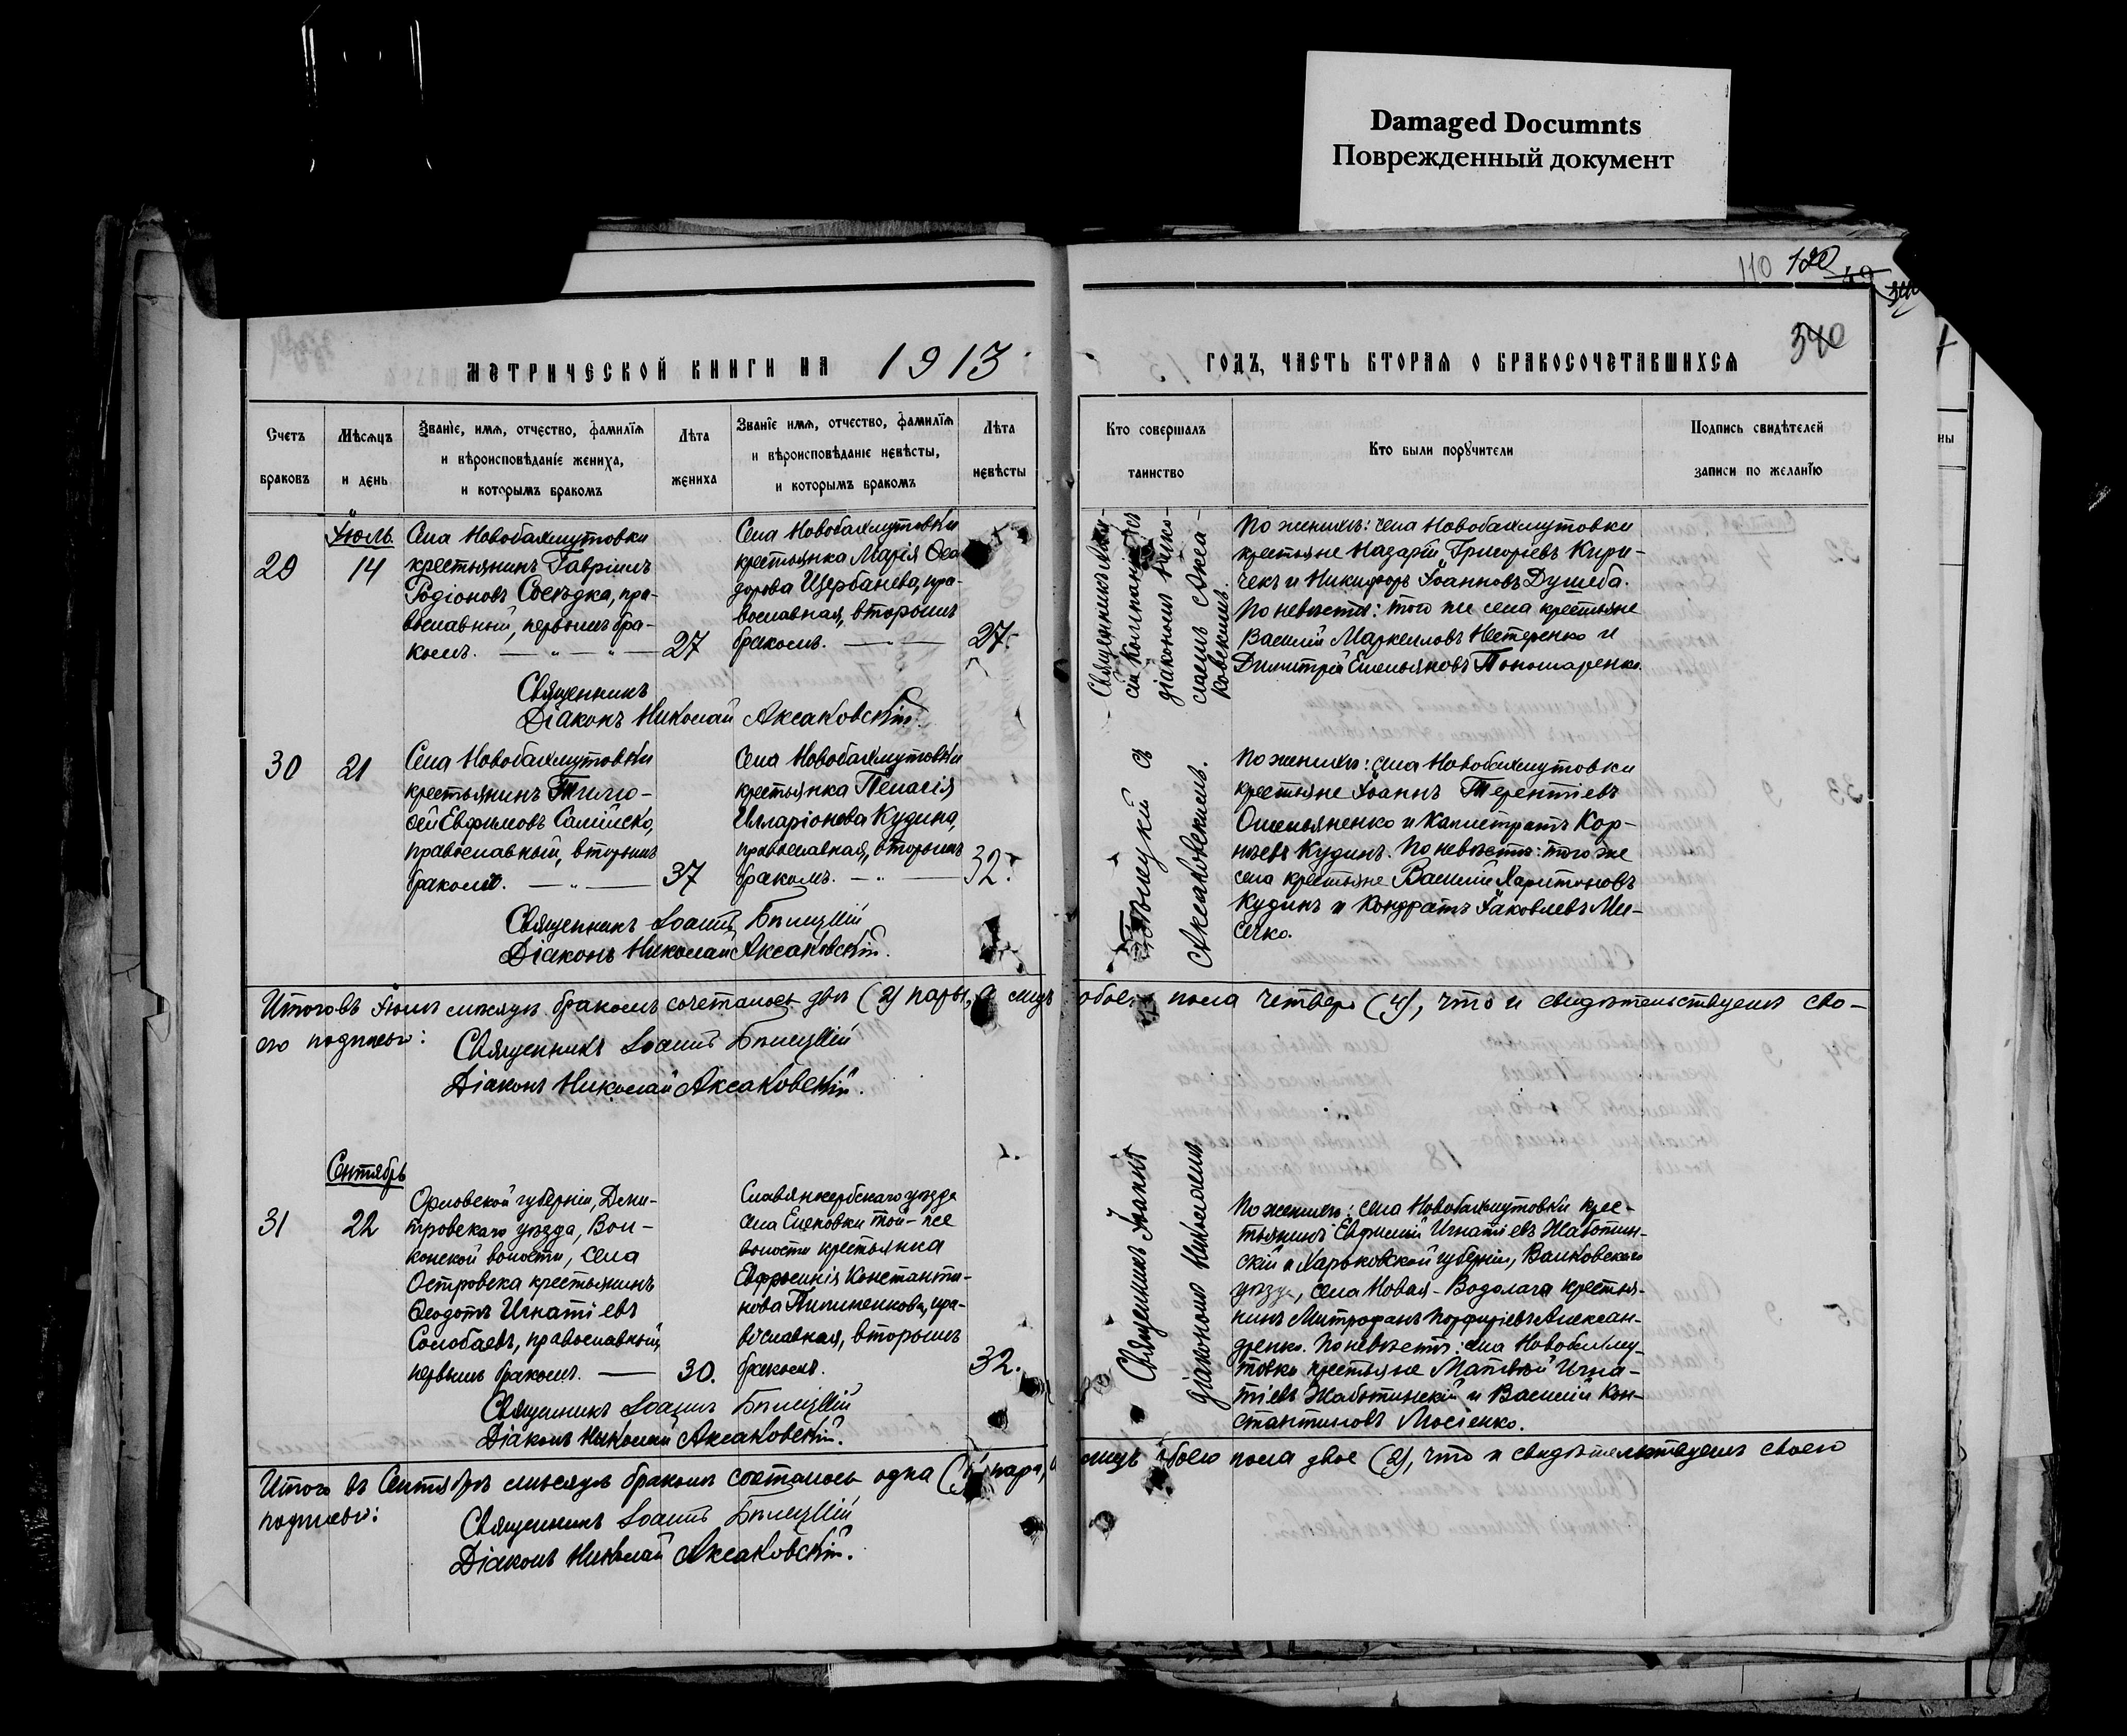 Damaged Documnts
Поврежденный документ
110 120
340
МЕТРИЧЕСКОЙ КНИГИ НА 1913
ГОДЪ, ЧАСТЬ ВТОРАЯ О БРАКОСОЧЕТАВШИХСЯ
Счетъ браковъ
Мѣсяцъ и день
Званіе, имя, отчество, фамилія и вѣроисповѣданіе жениха, и которымъ бракомъ
Лѣта жениха
Званіе имя, отчество, фамилія и вѣроисповѣданіе невѣсты, и которымъ бракомъ
Лѣта невѣсты
Кто совершалъ таинство
Кто были поручители
Подпись свидѣтелей записи по желанію
Іюль
29
14
Села Новобахмутовки
крестьянинъ Гавріилъ
Родіоновъ Сосѣдка, пра-
вославный, первымъ бра-
комъ.
27
Села Новобахмутовки
крестьянка Марія Ѳео
дорова Щербанева, пра-
вославная, вторымъ
бракомъ.
27.
По женихѣ: села Новобахмутовки
крестьяне Назарій Григоріевъ Кири-
чекъ и Никифоръ Іоанновъ Душеба.
По невѣстѣ: того же села крестьяне
Василій Маркелловъ Нестеренко и
Димитрій Емельяновъ Пономаренко.
діакономъ Нико-
лаемъ Акса-
ковскимъ.
Священникъ
Діаконъ Николай Аксаковскій.
30
21
Села Новобахмутовки
крестьянинъ Тимо-
ѳей Евфимовъ
православный, вторымъ
бракомъ.
37
Села Новобахмутовки
крестьянка Пелагія
Илларіонова Кудина,
православная, вторымъ
бракомъ.
32.
Бѣлицкій съ
Аксаковскимъ.
По женихѣ: села Новобахмутовки
крестьяне Іоаннъ Терентіевъ
Омельяненко и Калистратъ Кор-
нѣевъ Кудинъ. По невѣстѣ: того же
села крестьяне Василій Харитоновъ
Кудинъ и Кондратъ Іаковлевъ Ми-
сечко.
Священникъ Іоаннъ Бѣлицкій
Діаконъ Николай Аксаковскій.
Итого въ Іюлѣ мѣсяцѣ бракомъ сочеталось двѣ (2) пары, а лицъ обоего пола четверо (4), что и свидѣтельствуемъ сво-
ею подписью:
Священникъ Іоаннъ Бѣлицкій
Діаконъ Николай Аксаковскій.
Сентябрь
31
22
Орловской губерніи, Дми-
тровскаго уѣзда, Вол-
конской волости, села
Островска крестьянинъ
Ѳеодотъ Игнатіевъ
Солобаевъ, православный,
первымъ бракомъ.
30.
Славяносербскаго уѣзда
села Еленовки той-же
волости крестьянка
Евфросинія Константи-
нова Пилипенкова, пра-
вославная, вторымъ
бракомъ.
32.
Священникъ Іоаннъ
діакономъ Николаемъ
По женихѣ: села Новобахмутовки крес-
тьянинъ Евфимій Игнатіевъ Жаботин-
скій и Харьковской губерніи, Валковскаго
уѣзда, села Новая-Водолага крестья-
нинъ Митрофанъ Порфиріевъ Алексан-
дренко. По невѣстѣ: села Новобахму-
товки крестьяне Матвѣй Игна-
тіевъ Жаботинскій и Василій Кон-
стантиновъ Мосіенко.
Священникъ Іоаннъ Бѣлицкій
Діаконъ Николай Аксаковскій.
Итого въ Сентябрѣ мѣсяцѣ бракомъ сочеталось одна (1) пара, а лицъ обоего пола двое (2), что и свидѣтельствуемъ своею
подписью:
Священникъ Іоаннъ Бѣлицкій
Діаконъ Николай Аксаковскій.